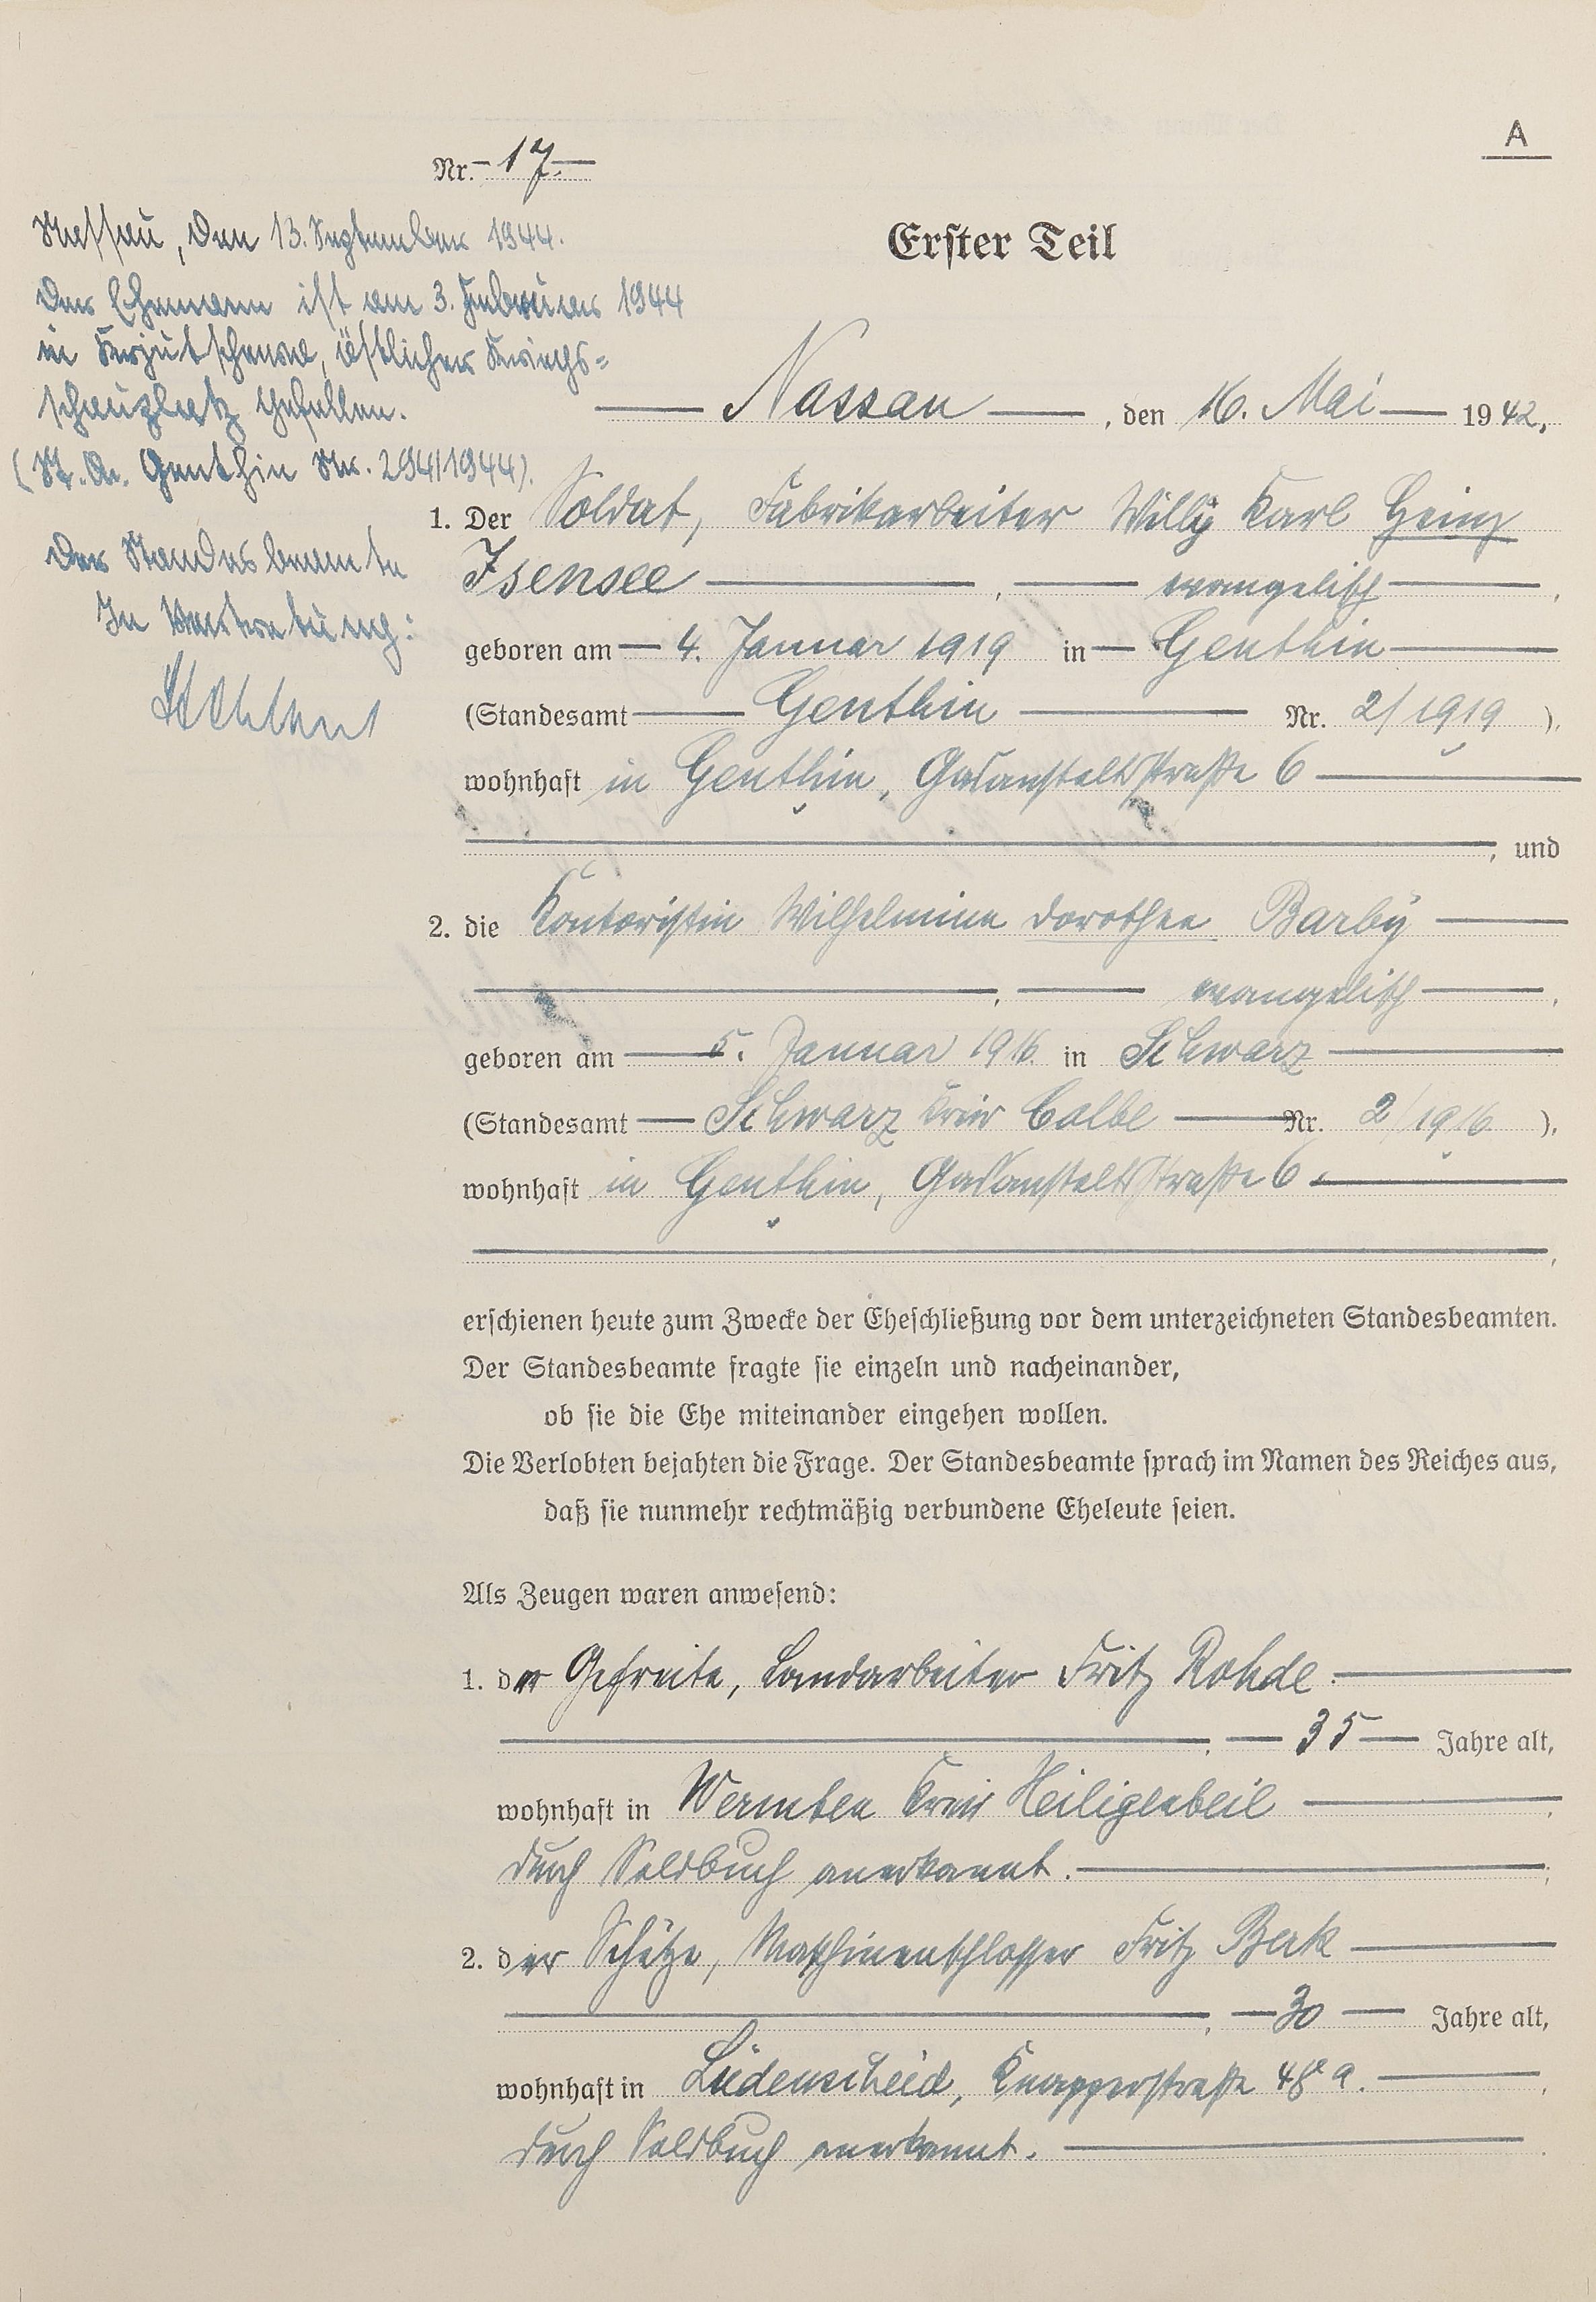 A
Nr. 17.
Nassau, den 13. September 1944.
Der Ehemann ist am 3. Februar 1944
in östlicher Kriegs=
schauplatz gefallen.
(St. A. Genthin Nr. 294/1944).
Der Standesbeamte
In Vertretung:
Erster Teil
Nassau, den 16. Mai 1942.
1. Der Soldat, Fabrikarbeiter Willy Karl Heinz
Isensee, evangelisch,
geboren am 4. Januar 1919 in Genthin
(Standesamt Genthin Nr. 2/1919),
wohnhaft in Genthin, Gasanstaltstraße 6
, und
2. die Kontoristin Wilhelmine Dorothee Barby
, evangelisch,
geboren am 5. Januar 1916 in Schwarz
(Standesamt Schwarz Kreis Calbe Nr. 2/1916),
wohnhaft in Genthin, Gasanstaltstraße 6.
,
erschienen heute zum Zwecke der Eheschließung vor dem unterzeichneten Standesbeamten.
Der Standesbeamte fragte sie einzeln und nacheinander,
ob sie die Ehe miteinander eingehen wollen.
Die Verlobten bejahten die Frage. Der Standesbeamte sprach im Namen des Reiches aus,
daß sie nunmehr rechtmäßig verbundene Eheleute seien.
Als Zeugen waren anwesend:
1. der Gefreite, Landarbeiter Fritz Rohde.
, 35 Jahre alt,
wohnhaft in Wermten Kreis Heiligenbeil,
durch Soldbuch anerkannt.;
2. der Schütze, Maschinenschlosser Fritz Berk
, 30 Jahre alt,
wohnhaft in Lüdenscheid, Knapperstraße 48 a.,
durch Soldbuch anerkannt.